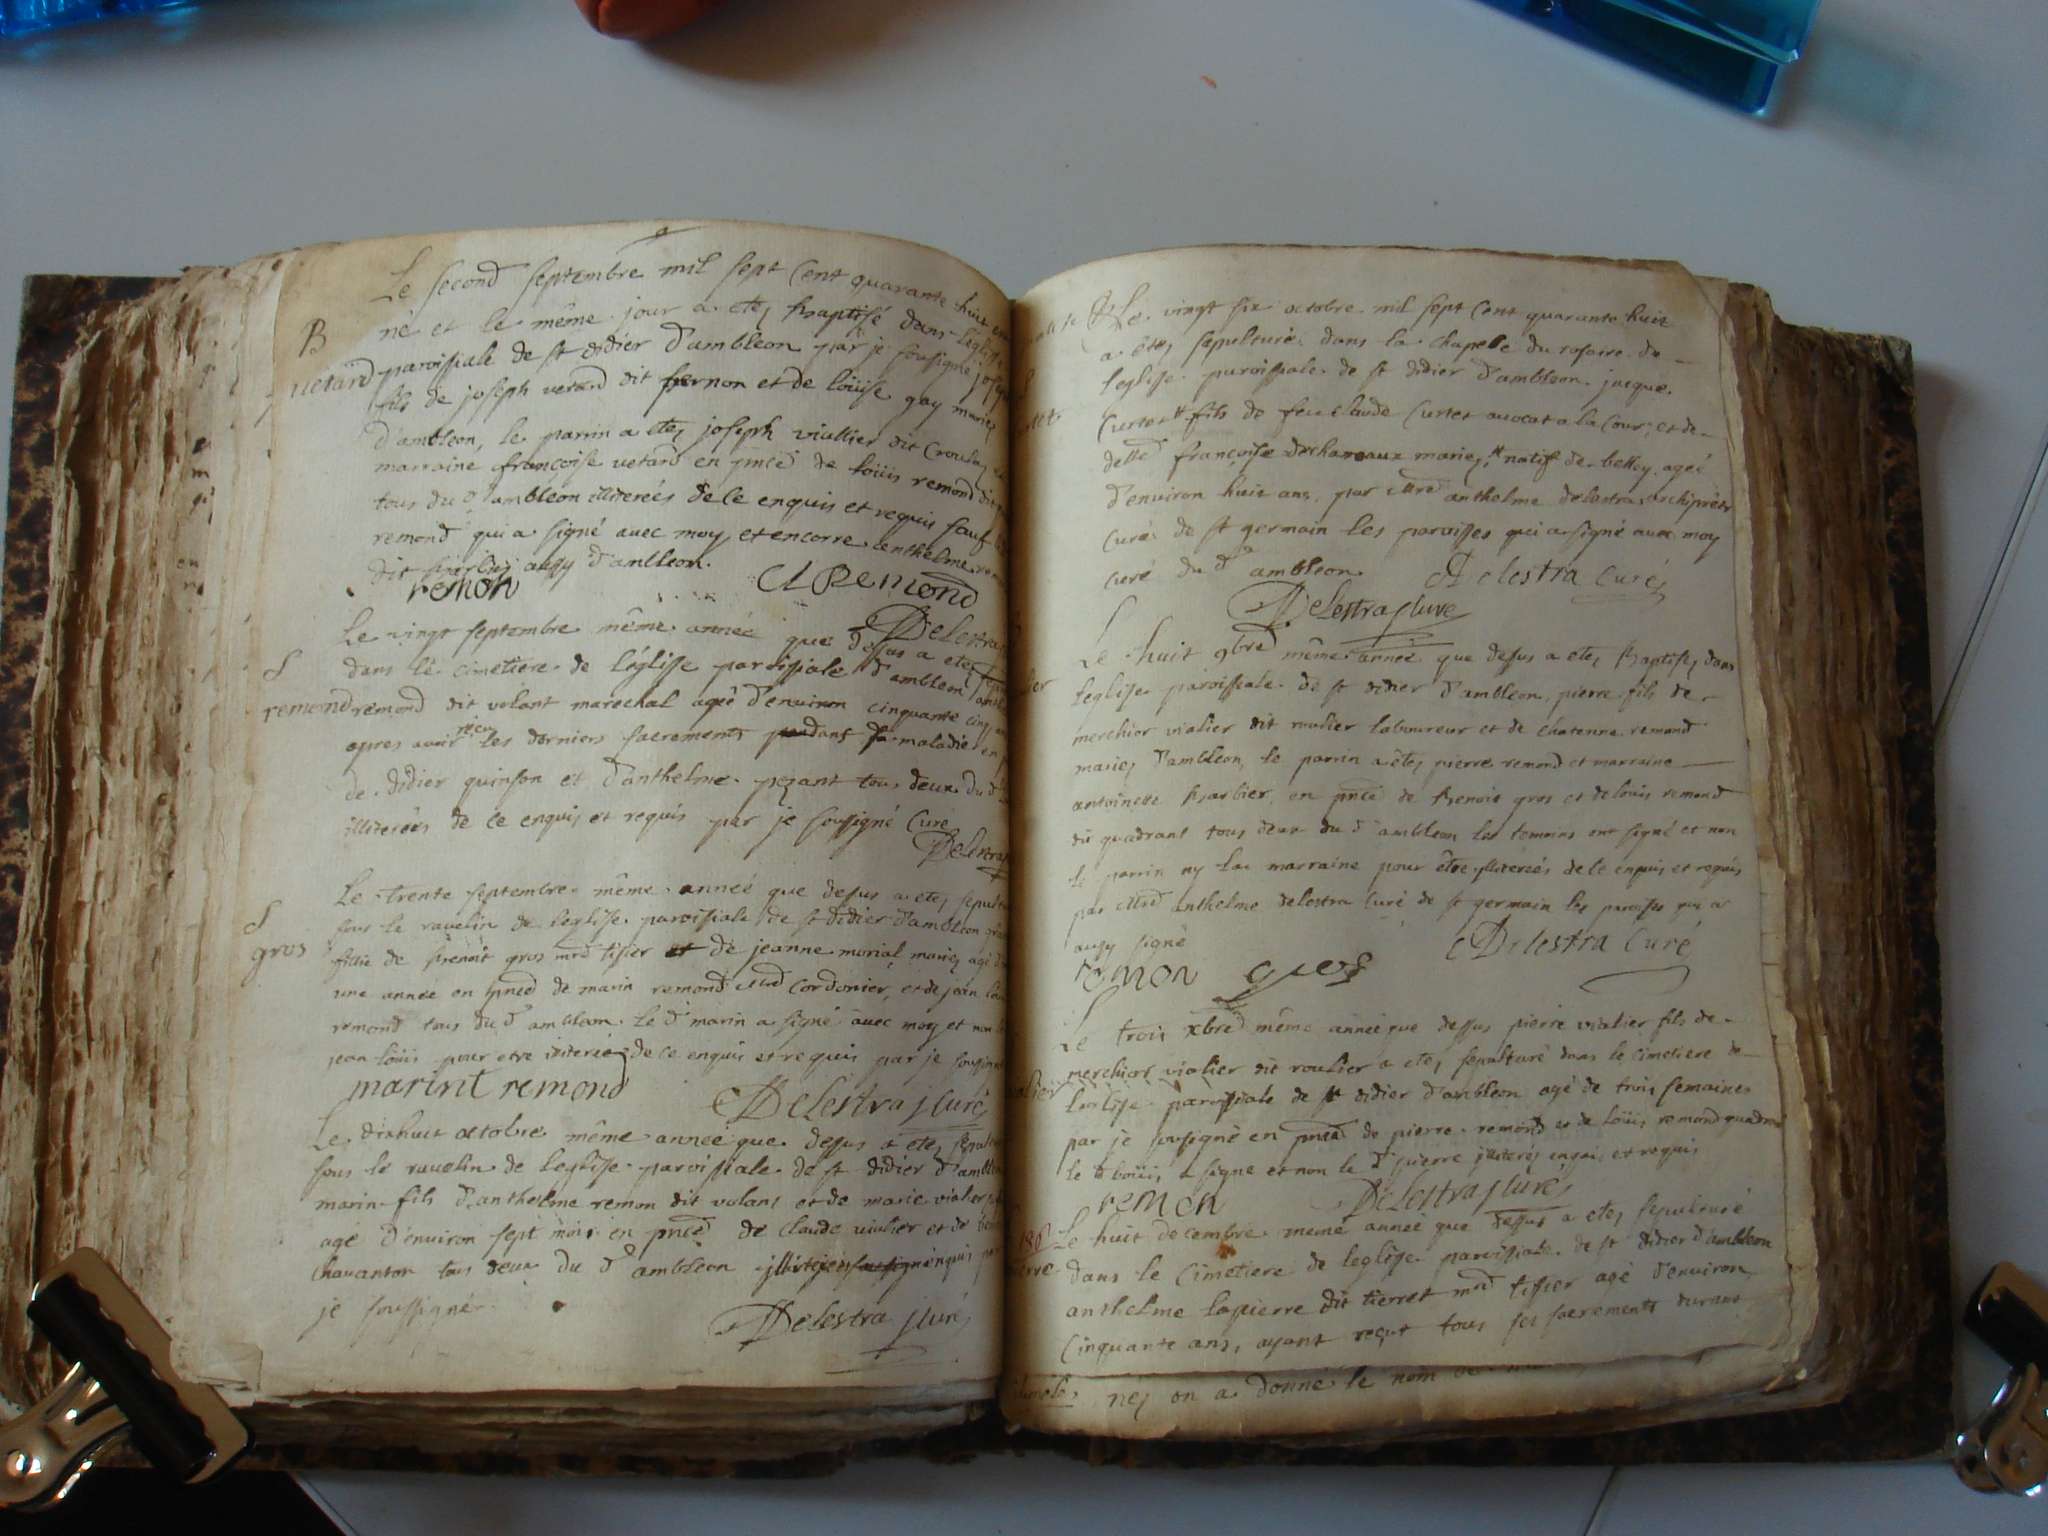 Le second septembre mil sept cent quarante huit est
né et le même jour a etez Baptisé dans l'église
B
paroissiale de st didier d'ambleon par je sousigné joseph
vetard
fils de joseph vetard dit fernon et de loüise gay mariez
d'ambleon, le parrin a etez joseph viallier dit
marraine françoise vetard en pnce de loüis remond dit
tous du d ambleon illiterées de ce enquis et requis sauf
remond qui a signé avec moy et encorre anthelme
dit aussy d'ambleon.
remon
Cl Remond
Delestra
Le vingt septembre même année que dessus a etez
S
dans le cimetiere de l'église paroissiale d'ambleon
remond
remond dit volant marechal agée d'environ cinquante cinq
apres avoir reçu les derniers sacrements pendant sa maladie en
de didier quinson et d'anthelme pezant tous deux du d
illiterées de ce enquis et requis par je soussigné Curé
Delestra
Le trente septembre même année que dessus a etez
S
sous le ravelin de leglise paroissiale de st didier d'ambleon
gros
fillie de Benoit gros mrd tisier et de jeanne morial mariez agé
une année en pnce de marin remond mrd cordonier, et de jean loüis
remond tous du d ambleon le d marin a signé avec moy et non
jean loüis pour etre illiteré de ce enquis et requis par je
marint remond
Delestra jcuré
Le dixhuit octobre même année que dessus a etez
sous le ravelin de leglise paroissiale de st didier d'ambleon
marin fils d'anthelme remon dit volant et de marie vialier
agé d'environ sept mois en pnce de claude vialier et de
chavanton tous deux du d ambleon illiterées enquis
je soussigné.
Delestra jcuré
Le vingt six octobre mil sept cent quarante huit
a etez sepulturé dans la chapelle du rosaire de
leglise paroissiale de st didier d'ambleon jacque
Curtet fils de feu claude Curtet avocat a la Cour, et de
delle françoise mariez natif de belley ageé
d'environ huit ans, par mre anthelme delestra archiprêtre
curé de st germain les paroisses qui a signé avec moy
curé du d ambleon
Delestra Curé
Delestra jcure
Le huit 9bre même année que dessus a etez Baptisez dans
leglise paroissiale de st didier d'ambleon, pierre fils de
merchior vialier dit roulier laboureur et de remond
mariez d'ambleon, le parrin a êtez pierre remond et marraine
antoinette Barbier, en pnce de Benoit gros et de louis remond
dit quadrant tous deux du d ambleon les temoins ont signé et non
le parrin ny la marraine pour être illiterées de ce enquis et requis
par mre anthelme delestra curé de st germain les paroisses qui a
aussy signé
Delestra Curé
remon
gros
Le trois xbre même année que dessus pierre vialier fils de
merchior vialier dit roulier a etez sepulturé dans le cimetiere de
leglise paroissiale de st didier d'ambleon agé de trois semaines
par je sousigné en pnce de pierre remond et de loüis remond quadrant
le d loüis a signe et non le d pierre illiterés enquis et requis
remon
Delestra jcuré
Le huit decembre meme année que dessus a etez sepulturé
dans le cimetiere de leglise paroissiale de st didier d'ambleon
anthelme lapierre dit tierret mrd tissier agé d'environ
cinquante ans, ayant reçut tous ses sacrements durant
néz on a donné le nom de